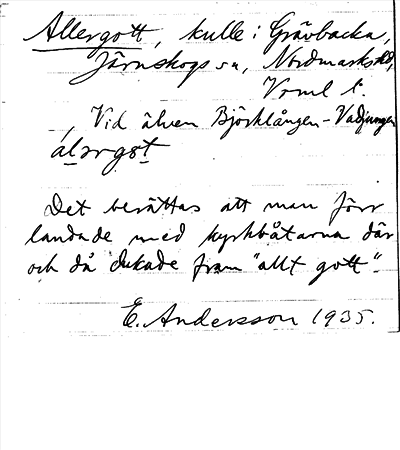 Allergott, kulle i Grävbacka,
Järnskogs sn, Nordmarks hd,
Vrml l.
Vid älven Björklången - Vadjungen
álərgɔt
Det berättas att man förr
landade med kyrkbåtarna där
och då dukade fram "allt gott".
E. Andersson 1935.